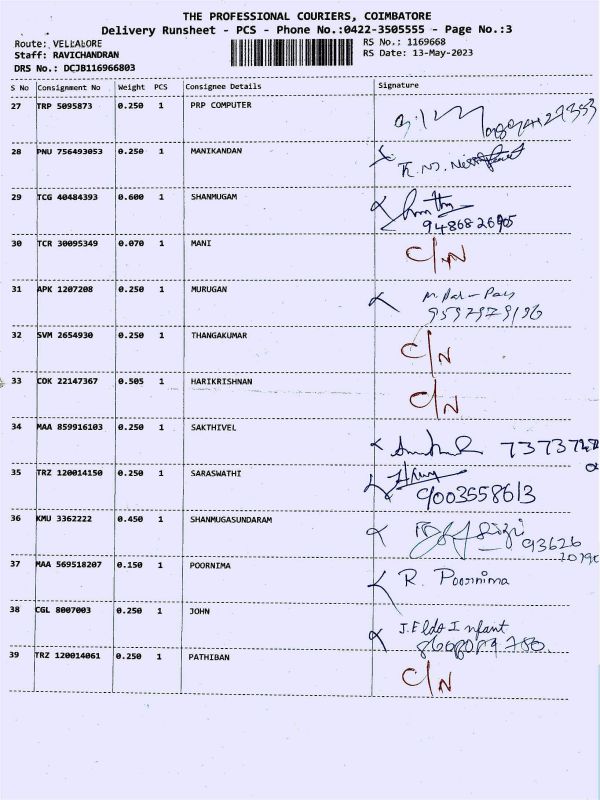 THE PROFESSIONAL COURIERS, COIMBATORE
Delivery Runsheet - PCS - Phone No.:0422-3505555 - Page No.:3
Route: VELLALORE RS No.: 1169668
Staff: RAVICHANDRAN RS Date: 13-May-2023
DRS No.: DCJB116966803
S No Consignment No Weight PCS Consignee Details Signature
27 TRP 5095873 0.250 1 PRP COMPUTER
28 PNU 756493053 0.250 1 MANIKANDAN
29 TCG 40484393 0.600 1 SHANMUGAM
9486826905
30 TCR 30095349 0.070 1 MANI C/N
31 APK 1207208 0.250 1 MURUGAN
9597979196
32 SVM 2654930 0.250 1 THANGAKUMAR C/N
33 COK 22147367 0.505 1 HARIKRISHNAN C/N
34 MAA 859916103 0.250 1 SAKTHIVEL
35 TRZ 120014150 0.250 1 SARASWATHI
9003558613
36 KMU 3362222 0.450 1 SHANMUGASUNDARAM
93626
37 MAA 569518207 0.150 1 POORNIMA R. Poornima
38 CGL 8007003 0.250 1 JOHN J. Eldo Infant
39 TRZ 120014061 0.250 1 PATHIBAN C/N